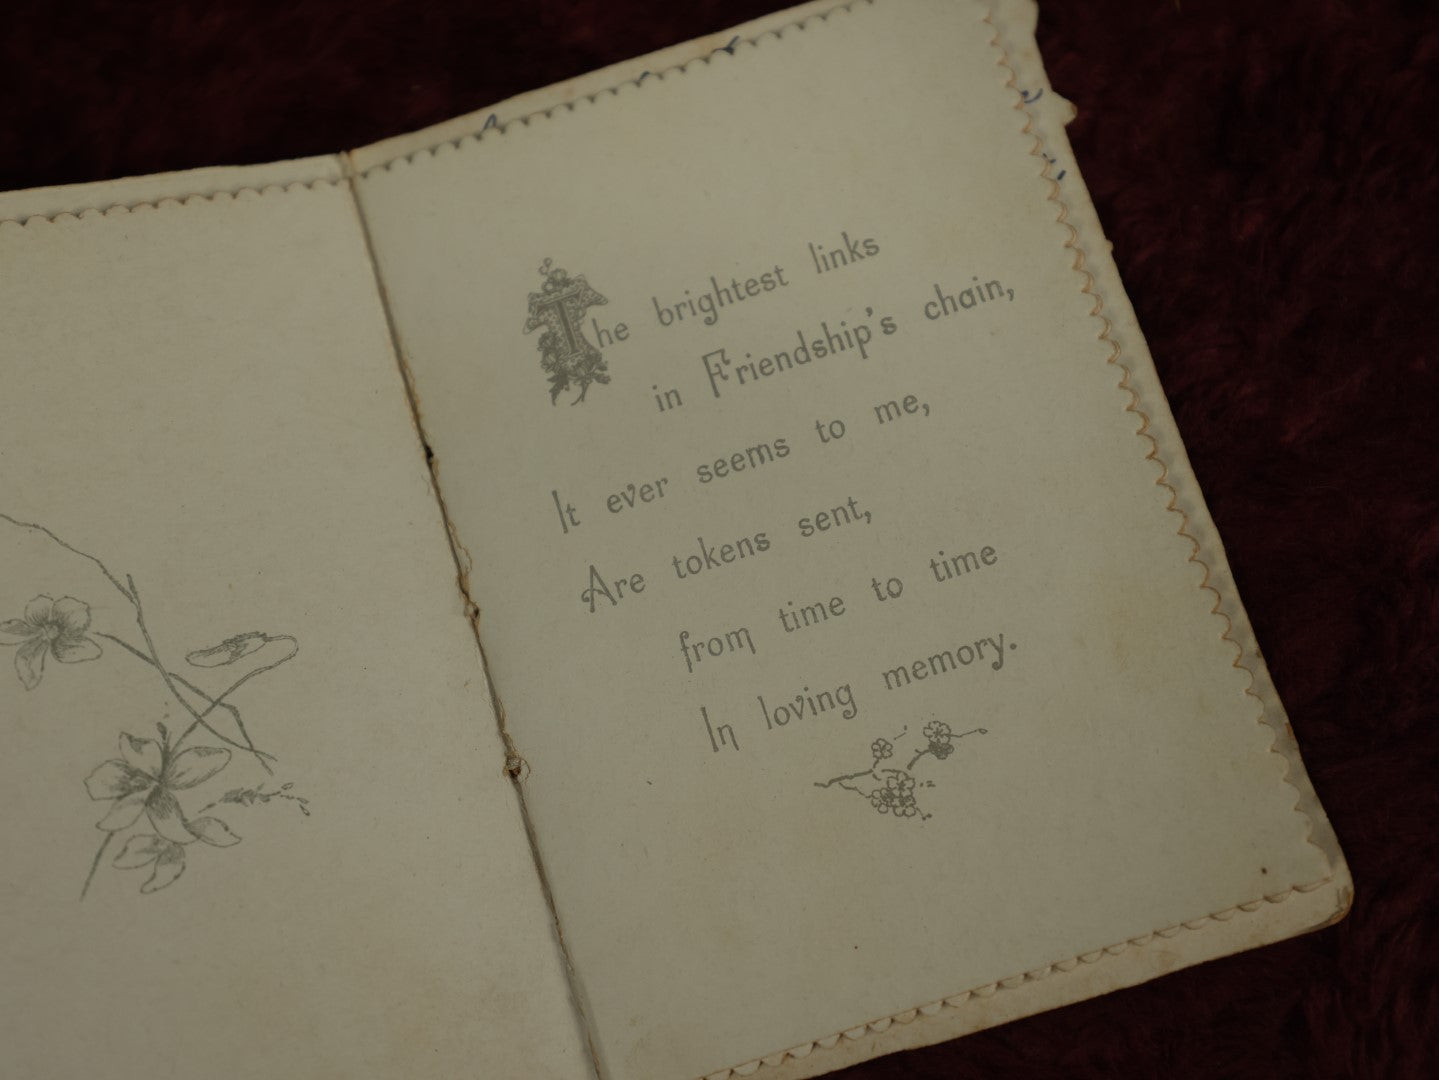 The brightest links
in Friendship's chain,
It ever seems to me,
Are tokens sent,
from time to time
In loving memory.